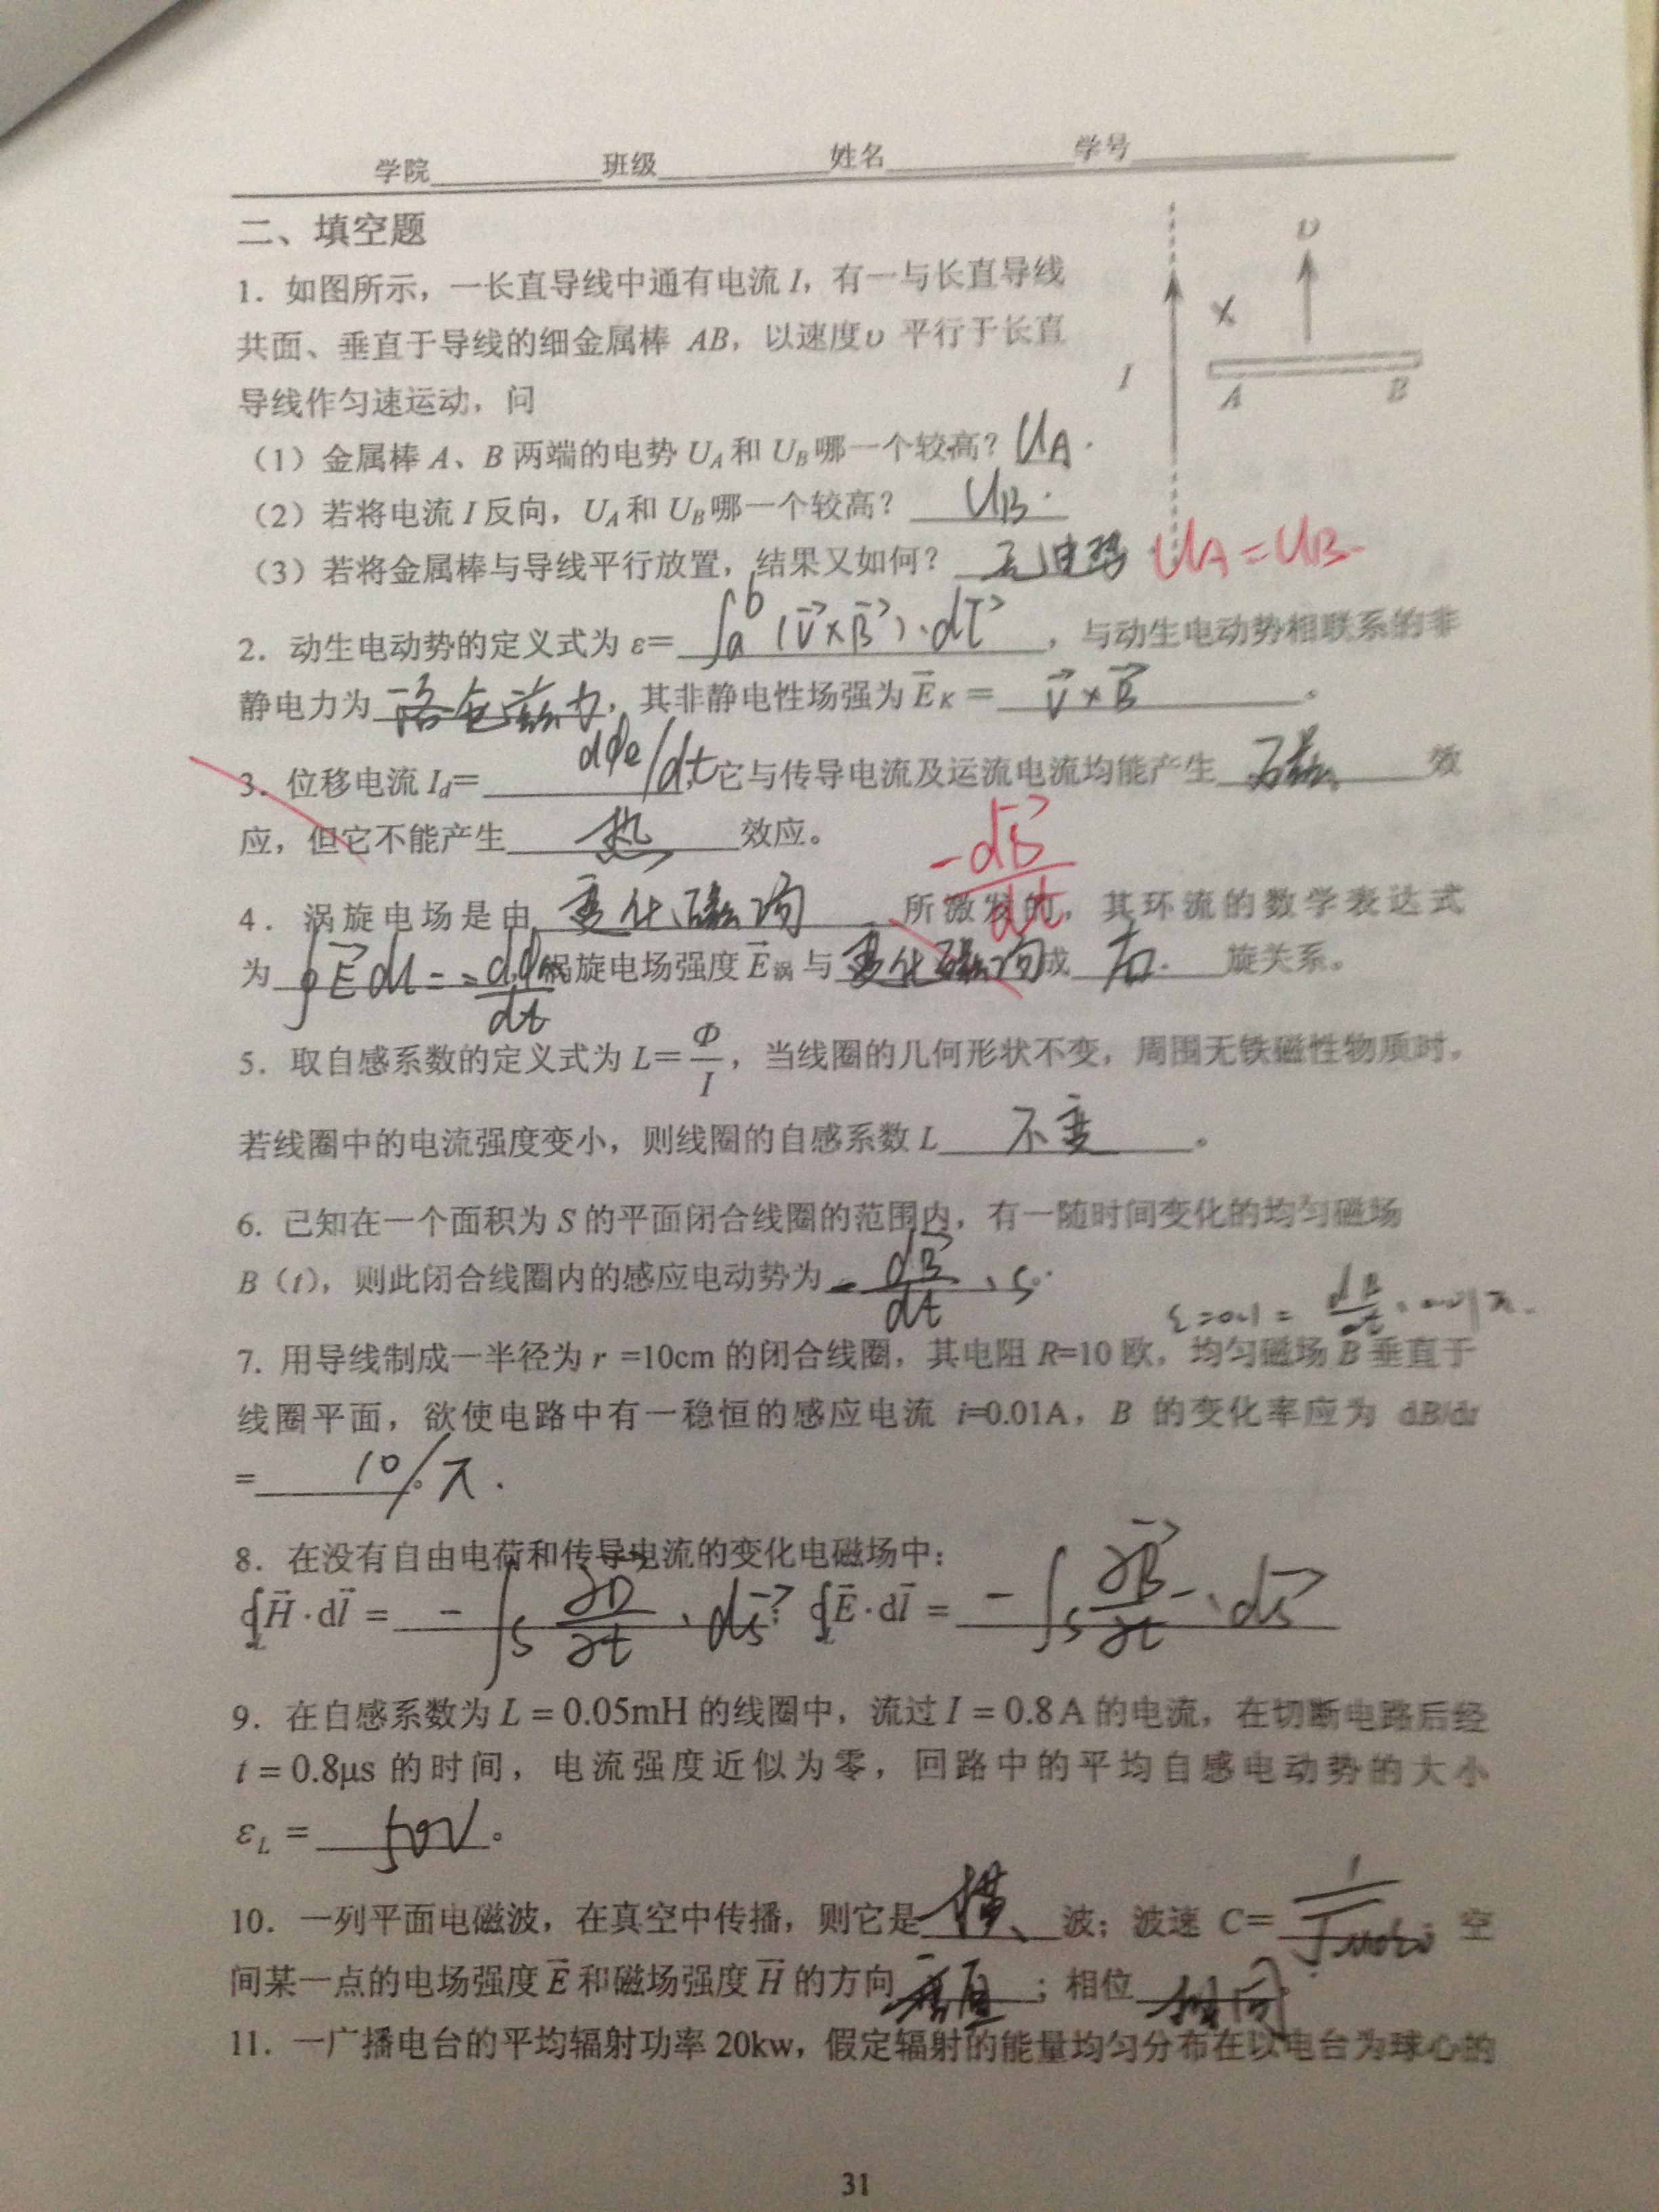 学院 班级 姓名 学号
二、填空题
1. 如图所示，一长直导线中通有电流 I，有一与长直导线
共面、垂直于导线的细金属棒 AB，以速度υ 平行于长直
导线作匀速运动，问
υ
×
I
A B
（1）金属棒 A、B 两端的电势 U_A 和 U_B 哪一个较高？ U_A.
（2）若将电流 I 反向，U_A 和 U_B 哪一个较高？ U_B.
（3）若将金属棒与导线平行放置，结果又如何？ U_A=U_B
2. 动生电动势的定义式为 ε= ∫_a^b (V⃗×B⃗)·dl⃗ ，与动生电动势相联系的非
静电力为 洛仑兹力，其非静电性场强为 E⃗_K = V⃗×B⃗ 。
3. 位移电流 I_d= dΦe/dt，它与传导电流及运流电流均能产生 磁 效
应，但它不能产生 热 效应。
-dB⃗/dt
4. 涡旋电场是由 变化磁场 所激发的，其环流的数学表达式
为 ∮E⃗dl=-dΦm/dt 涡旋电场强度 E⃗涡 与 变化磁场 成 右. 旋关系。
5. 取自感系数的定义式为 L=Φ/I，当线圈的几何形状不变，周围无铁磁性物质时，
若线圈中的电流强度变小，则线圈的自感系数 L 不变 。
6. 已知在一个面积为 S 的平面闭合线圈的范围内，有一随时间变化的均匀磁场
B（t），则此闭合线圈内的感应电动势为 -dB⃗/dt·S.
ε=0.1=dB/dt·0.01π.
7. 用导线制成一半径为 r =10cm 的闭合线圈，其电阻 R=10 欧，均匀磁场 B 垂直于
线圈平面，欲使电路中有一稳恒的感应电流 i=0.01A，B 的变化率应为 dB/dt
= 10/π.。
8. 在没有自由电荷和传导电流的变化电磁场中：
∮_L H⃗·dl⃗ = -∫_S ∂D⃗/∂t·ds⃗； ∮_L E⃗·dl⃗ = -∫_S ∂B⃗/∂t·ds⃗
9. 在自感系数为 L = 0.05mH 的线圈中，流过 I = 0.8 A 的电流，在切断电路后经
t = 0.8μs 的时间，电流强度近似为零，回路中的平均自感电动势的大小
ε_L = 50V。
10. 一列平面电磁波，在真空中传播，则它是 横 波；波速 C= 1/√μ0ε0；空
间某一点的电场强度 E⃗ 和磁场强度 H⃗ 的方向 垂直 ；相位 相同.
11. 一广播电台的平均辐射功率 20kw，假定辐射的能量均匀分布在以电台为球心的
31